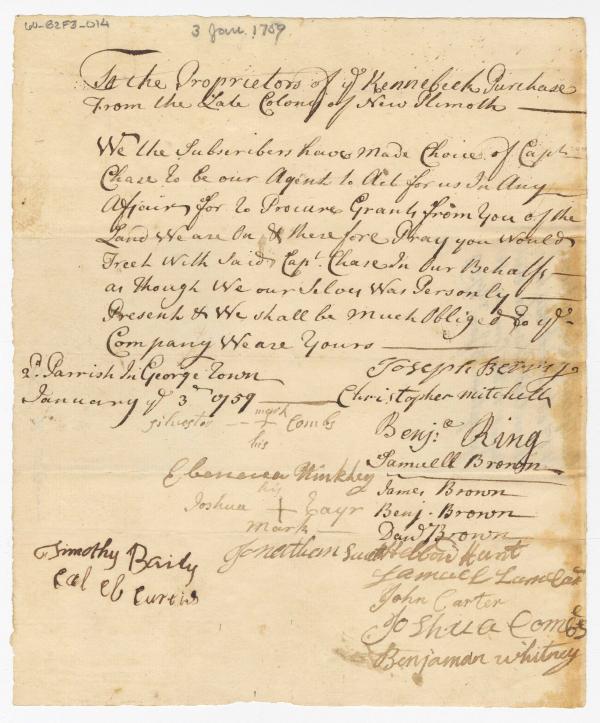 60-82F3-014
3 Jan. 1759
To the Proprietors of yᵉ Kennebeck Purchase
From the Late Colony of New Plimoth
We the Subscribers have Made Choice of Capᵗ
Chase to be our Agent to Act for us In Any
Affair for to Procure Grants from You of the
Land We are On & therefore Pray you Would
Treet With Said Capᵗ. Chase In Our Behalf
as though We our Selves Was Personly
Present & We shall be Much Obliged to yᵉ
Company We are Yours
2ᵈ Parrish In George Town
January yᵉ 3ᵈ 1759
Joseph Berry
Christopher Mitchell
silvester + Combs
mark
his
Benjᵃ Ring
Samuell Brown
Ebenezer Hinkley
James Brown
his
Joshua +
mark
Benj. Brown
Davᵈ Brown
Jonathan
Hunt
Timothy Baily
Caleb Curtis
Samuel
John Carter
Joshua Combs
Benjaman Whitney